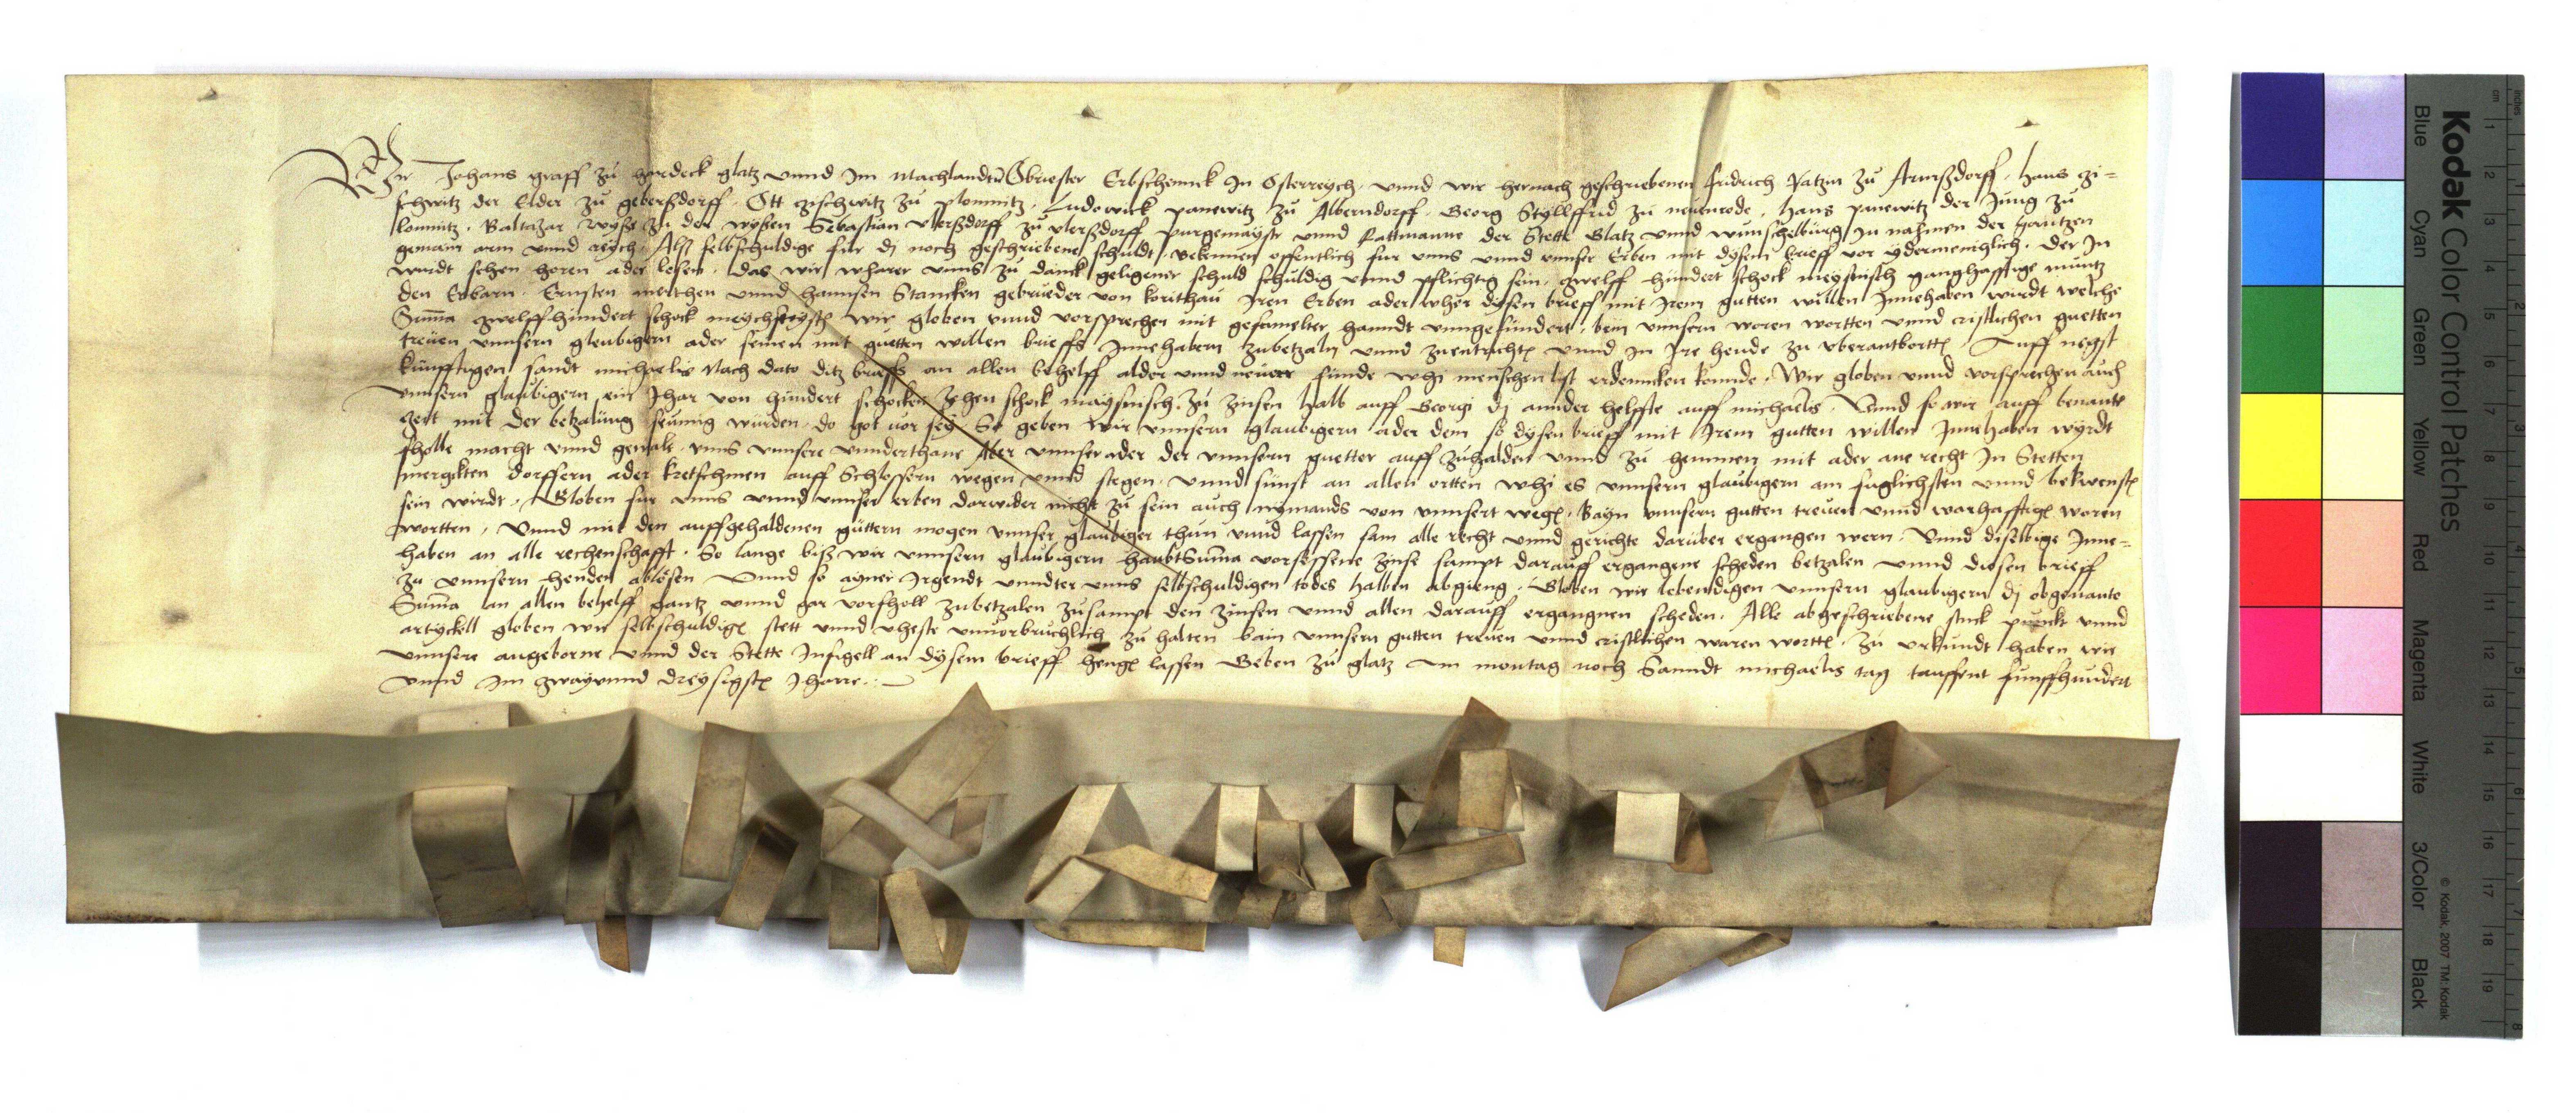 Wir Johans graff zu hardeck glatz vnnd Im Machlandt Obrister Erbschennck In Osterreych vnnd wir hernach geschriebenen fridrich zu Arnßdorff hans zi=
schwitz der Elder zu geberßdorff Ott zischwitz zu plomnitz Ludowick panewitz zu Alberndorff Georg Styllffrid zu neuenrode hans panewitz der Jung zu
lomnitz Baltazar Sebastian vlerßdorff zu vlerßdorff purgemayst vnnd Rattmanne der Stette Glatz vnnd wunschelburg In nahmen der gantzen
gemain arm vnnd reych Alß selbschuldige fur dj noch geschriebene schuldt bekennen offentlich fur vnns vnnd vnnser Erben mit dysem brieff vor ydermeniglich der In
wirdt sehen horen ader lesen das wir wharer vnns zu danck geligener schuld schuldig vnnd pflichtig sein zwelff hundert schock meysnisch ganghafftige muntz
den Erbarn Ernsten melchen vnnd hannsen Stancken gebrueder von koritthau Iren Erben ader wher dysen brieff mit Irem gutten willen Innehaben wirdt welche
Suma zwelffhundert schock wir globen vnnd vorsprechen mit gesamelter hanndt vnngesundert bein vnnsern woren wortten vnnd cristlichen guetten
treuen vnnsern gleubigern ader seinen mit guetten willen brieffs Innehabern zubetzaln vnnd zuentrichtn vnnd In Ire hende zu vberantborttn Auff negst
kunfftigen sandt michaelis Nach dato ditz brieffs an allen behelff alder vnnd neuer funde whi menschen list erdenncken konnde Wir globen vnnd vorsprechen auch
vnnsern glaubigern ein Jhar von hundert schocken zehen schock maysnisch zu zinsen halb auff Georgi dj annder helffte auff michaelis Vnnd so wir auff benante
zeit mit der betzalung seumig wurden do got vor sey So geben wir vnnsern glaubigern ader dem so dysen brieff mit Irem gutten willen Innehaben wyrdt
sholle macht vnnd gewalt vnns vnnsere vnnderthane Aber vnnser ader der vnnsern guetter auff zuhalden vnnd zu hemmen mit ader ane recht In Stetten
mergkten dorffern ader kretschmen auff Schlossern wegen vnnd stegen vnnd sunst an allen ortten whi es vnnsern glaubigern am fuglichsten vnnd bekwenstn
sein wirdt Globen fur vnns vnnd vnnser erben darwider nicht zu sein auch nymands von vnnsert wegn Bayn vnnsern gutten treuen vnnd warhafftign woren
wortten Vnnd mit den auffgehaldenen guttern mogen vnnser glaubiger thun vnnd lassen sam alle recht vnnd gerichte daruber ergangen wern Vnnd diselbige Inne=
haben an alle rechenschafft So lange biß wir vnnsern glaubigern haubtSuma vorsessene zinse sampt darauff ergangene scheden betzalen vnnd diesen brieff
zu vnnsern henden ablosen Vnnd so ayner Irgendt vnndter vnns selbschuldigen todes halben abgieng Globen wir lebendigen vnnsern glaubigern dj obgenante
Suma an allen behelff gantz vnnd gar vorsholl zubetzalen zusampt den zinsen vnnd allen darauff ergangnen scheden Alle abgeschriebene stuck punckt vnnd
artyckell globen wir selbschuldign stett vnnd vheste vnuorbruchlich zu halten bain vnnsern gutten treuen vnnd cristlichen waren worttn Zu vrkundt haben wir
vnnsere angeborne vnnd der Stette Insigell an dysem brieff hengn lassen Geben zu glatz Am montag noch Sanndt michaelis tag taussent funffhundert
vnnd Im zwayvnnd dreysigstn Jharre
Kodak Color Control Patches
© Kodak, 2007 TM: Kodak
Blue Cyan Green Yellow Red Magenta White 3/Color Black
inches 1 2 3 4 5 6 7 8
cm 1 2 3 4 5 6 7 8 9 10 11 12 13 14 15 16 17 18 19